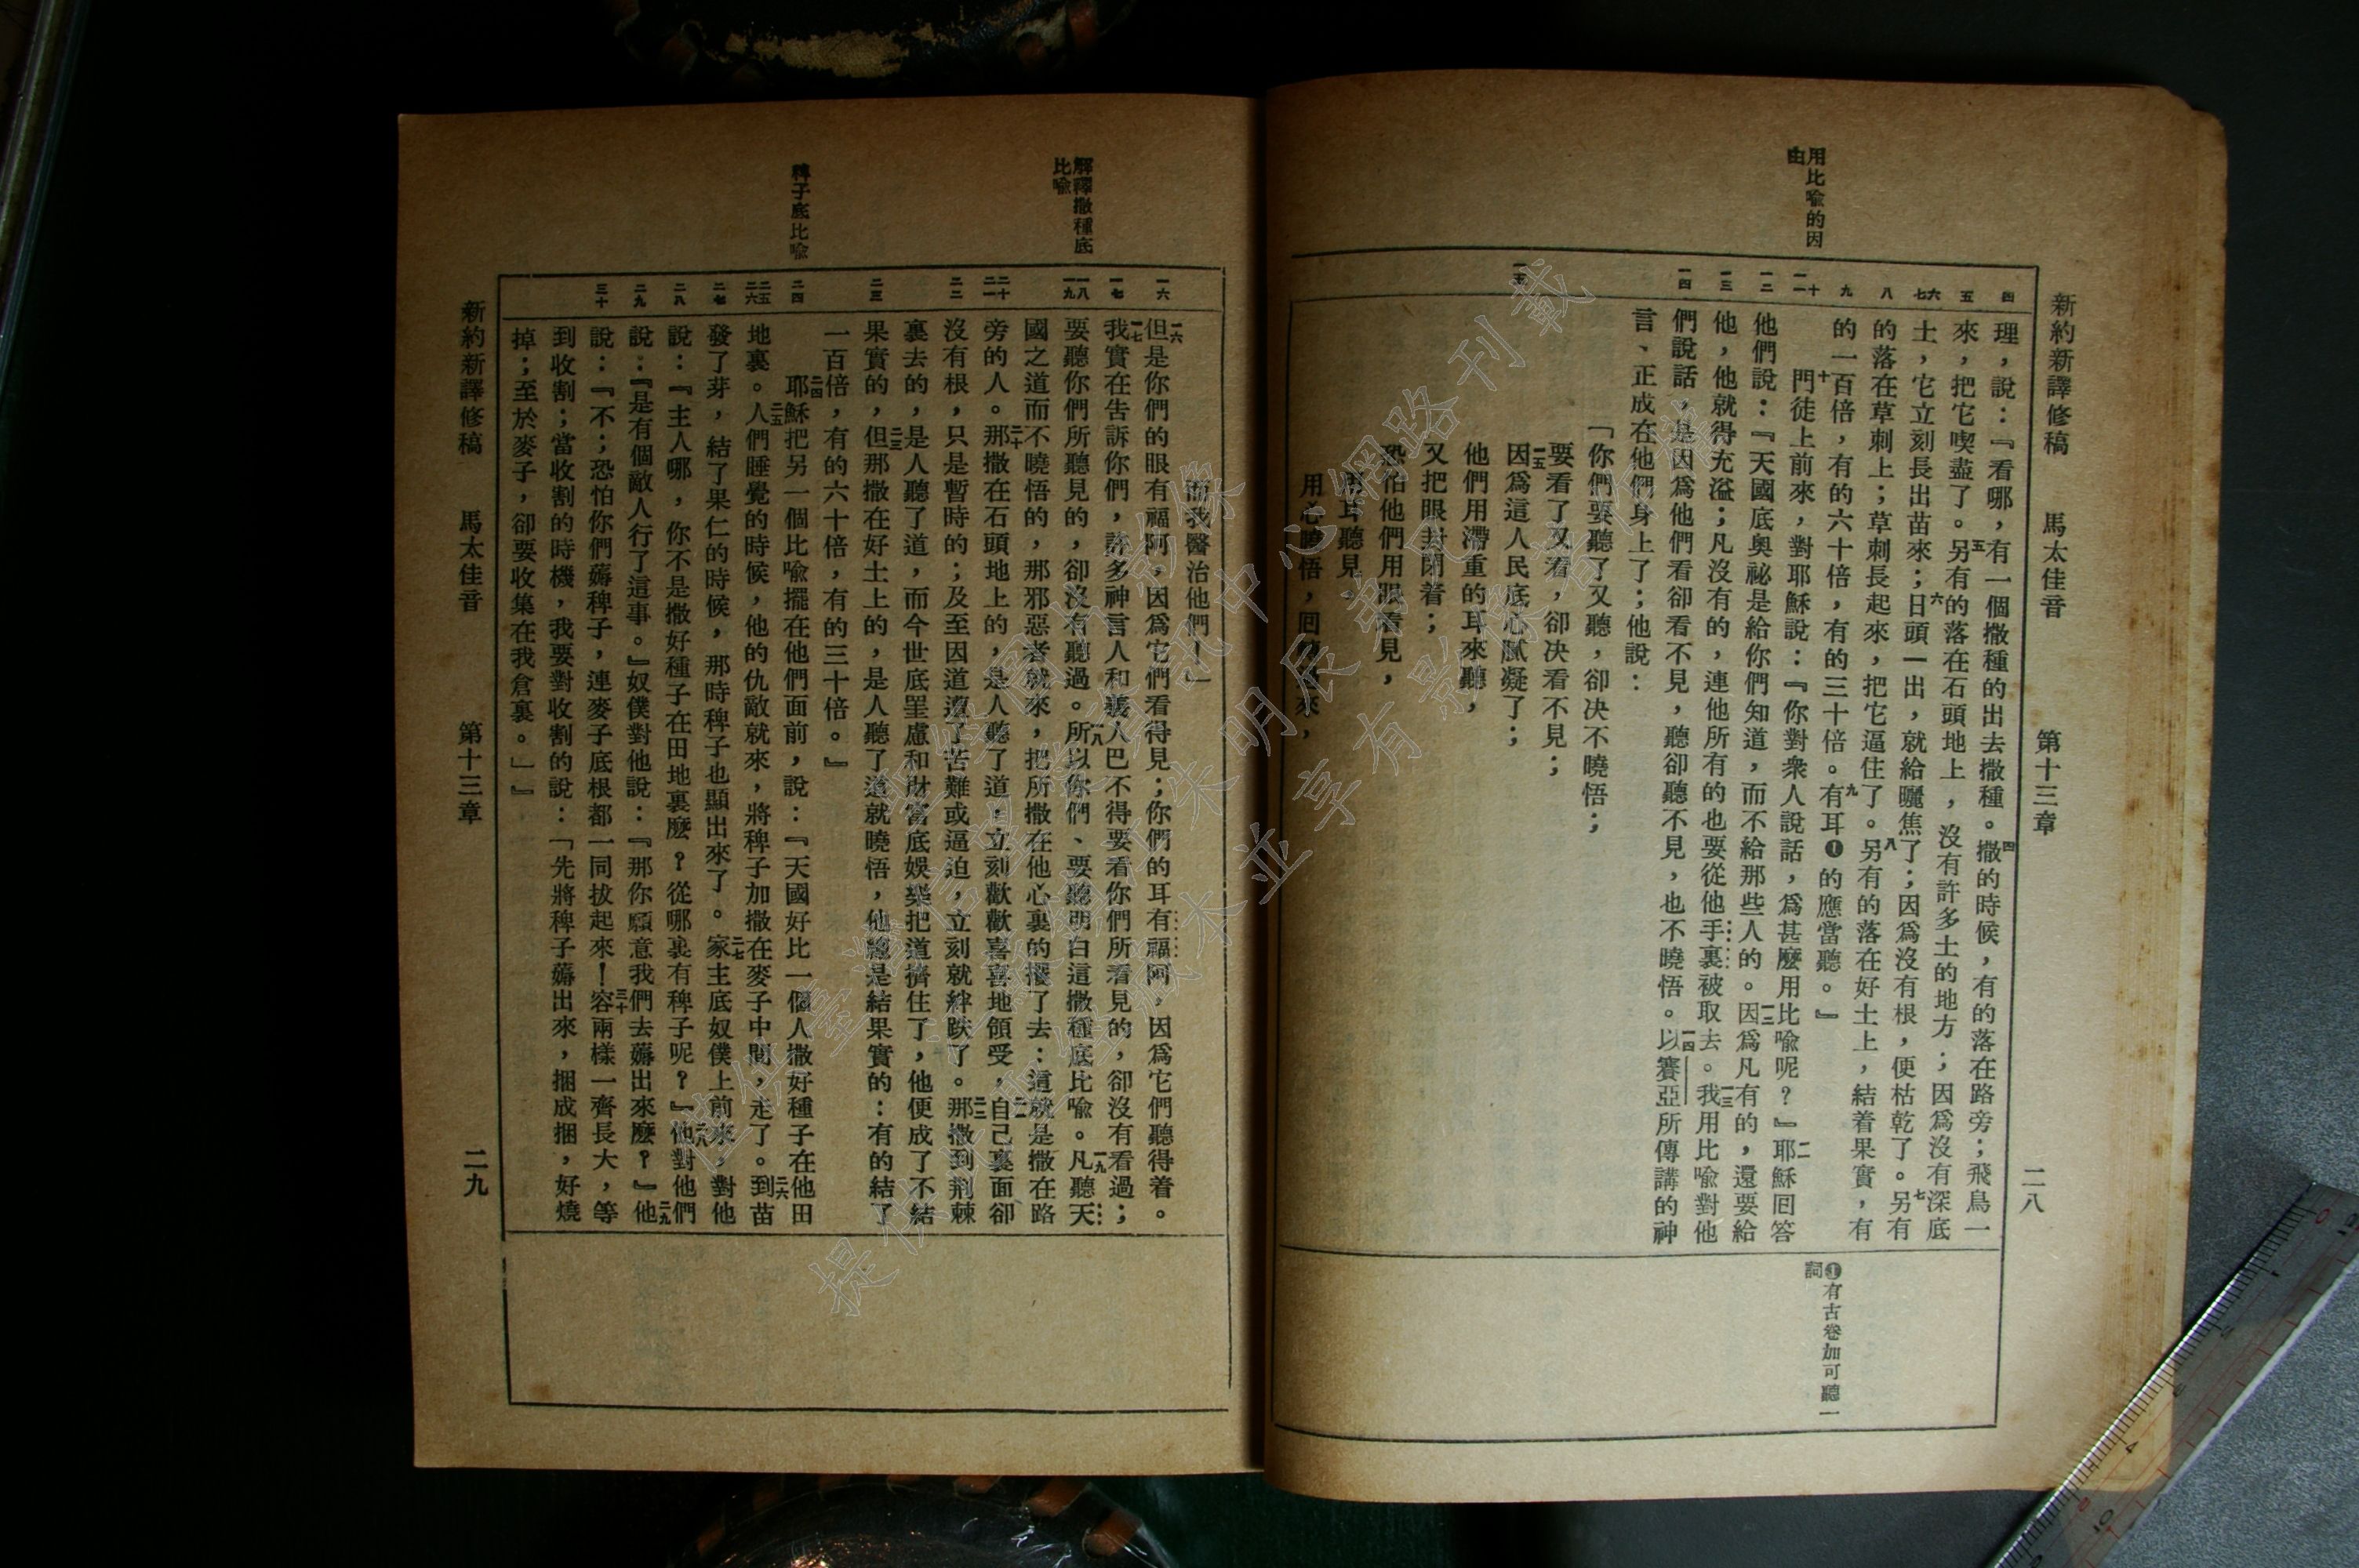 新約新譯修稿　馬太佳音　第十三章　二八
用比喻的因
由
四
五
六
七
八
九
十
一一
一二
一三
一四
一五
理，說：『看哪，有一個撒種的出去撒種。四撒的時候，有的落在路旁；飛鳥一
來，把它喫盡了。五另有的落在石頭地上，沒有許多土的地方；因爲沒有深底
土，它立刻長出苗來；六日頭一出，就給曬焦了；因爲沒有根，便枯乾了。七另有
的落在草刺上；草刺長起來，把它逼住了。八另有的落在好土上，結着果實，有
的一百倍，有的六十倍，有的三十倍。九有耳❶的應當聽。』
十門徒上前來，對耶穌說：『你對衆人說話，爲甚麼用比喻呢？』一一耶穌回答
他們說：『天國底奧祕是給你們知道，而不給那些人的。一二因爲凡有的，還要給
他，他就得充溢；凡沒有的，連他所有的也要從他手裏被取去。一三我用比喻對他
們說話，是因爲他們看卻看不見，聽卻聽不見，也不曉悟。一四以賽亞所傳講的神
言、正成在他們身上了；他說：
「你們要聽了又聽，卻決不曉悟；
要看了又看，卻決看不見；
一五因爲這人民底心膩凝了；
他們用滯重的耳來聽，
又把眼封閉着；
恐怕他們用眼看見，
用耳聽見，
用心曉悟，回
來，
❶有古卷加可聽一
詞
解釋撒種底
比喻
稗子底比喻
一六
一七
一八
一九
二十
二一
二二
二三
二四
二五
二六
二七
二八
二九
三十
而我醫治他們！」
一六但是你們的眼有福阿，因爲它們看得見；你們的耳有福阿，因爲它們聽得着。
一七我實在告訴你們，許多神言人和義人巴不得要看你們所看見的，卻沒有看過；
要聽你們所聽見的，卻沒有聽過。一八所以你們、要聽明白這撒種底比喻。一九凡聽天
國之道而不曉悟的，那邪惡者就來，把所撒在他心裏的攫了去：這就是撒在路
旁的人。二十那撒在石頭地上的，是人聽了道，立刻歡歡喜喜地領受，二一自己裏面卻
沒有根，只是暫時的；及至因道遭了苦難或逼迫，立刻就絆跌了。二二那撒到荆棘
裏去的，是人聽了道，而今世底罣慮和財富底娛樂把道擠住了，他便成了不結
果實的，二三但那撒在好土上的，是人聽了道就曉悟，他總是結果實的：有的結了
一百倍，有的六十倍，有的三十倍。』
二四耶穌把另一個比喻擺在他們面前，說：『天國好比一個人撒好種子在他田
地裏。二五人們睡覺的時候，他的仇敵就來，將稗子加撒在麥子中間，走了。二六到苗
發了芽，結了果仁的時候，那時稗子也顯出來了。二七家主底奴僕上前來，對他
說：『主人哪，你不是撒好種子在田地裏麼？從哪裏有稗子呢？』二八他對他們
說：『是有個敵人行了這事。』奴僕對他說：『那你願意我們去薅出來麼？』二九他
說：『不；恐怕你們薅稗子，連麥子底根都一同拔起來！三十容兩樣一齊長大，等
到收割；當收割的時機，我要對收割的說：「先將稗子薅出來，捆成捆，好燒
掉；至於麥子，卻要收集在我倉裏。」』
新約新譯修稿　馬太佳音　第十三章　二九